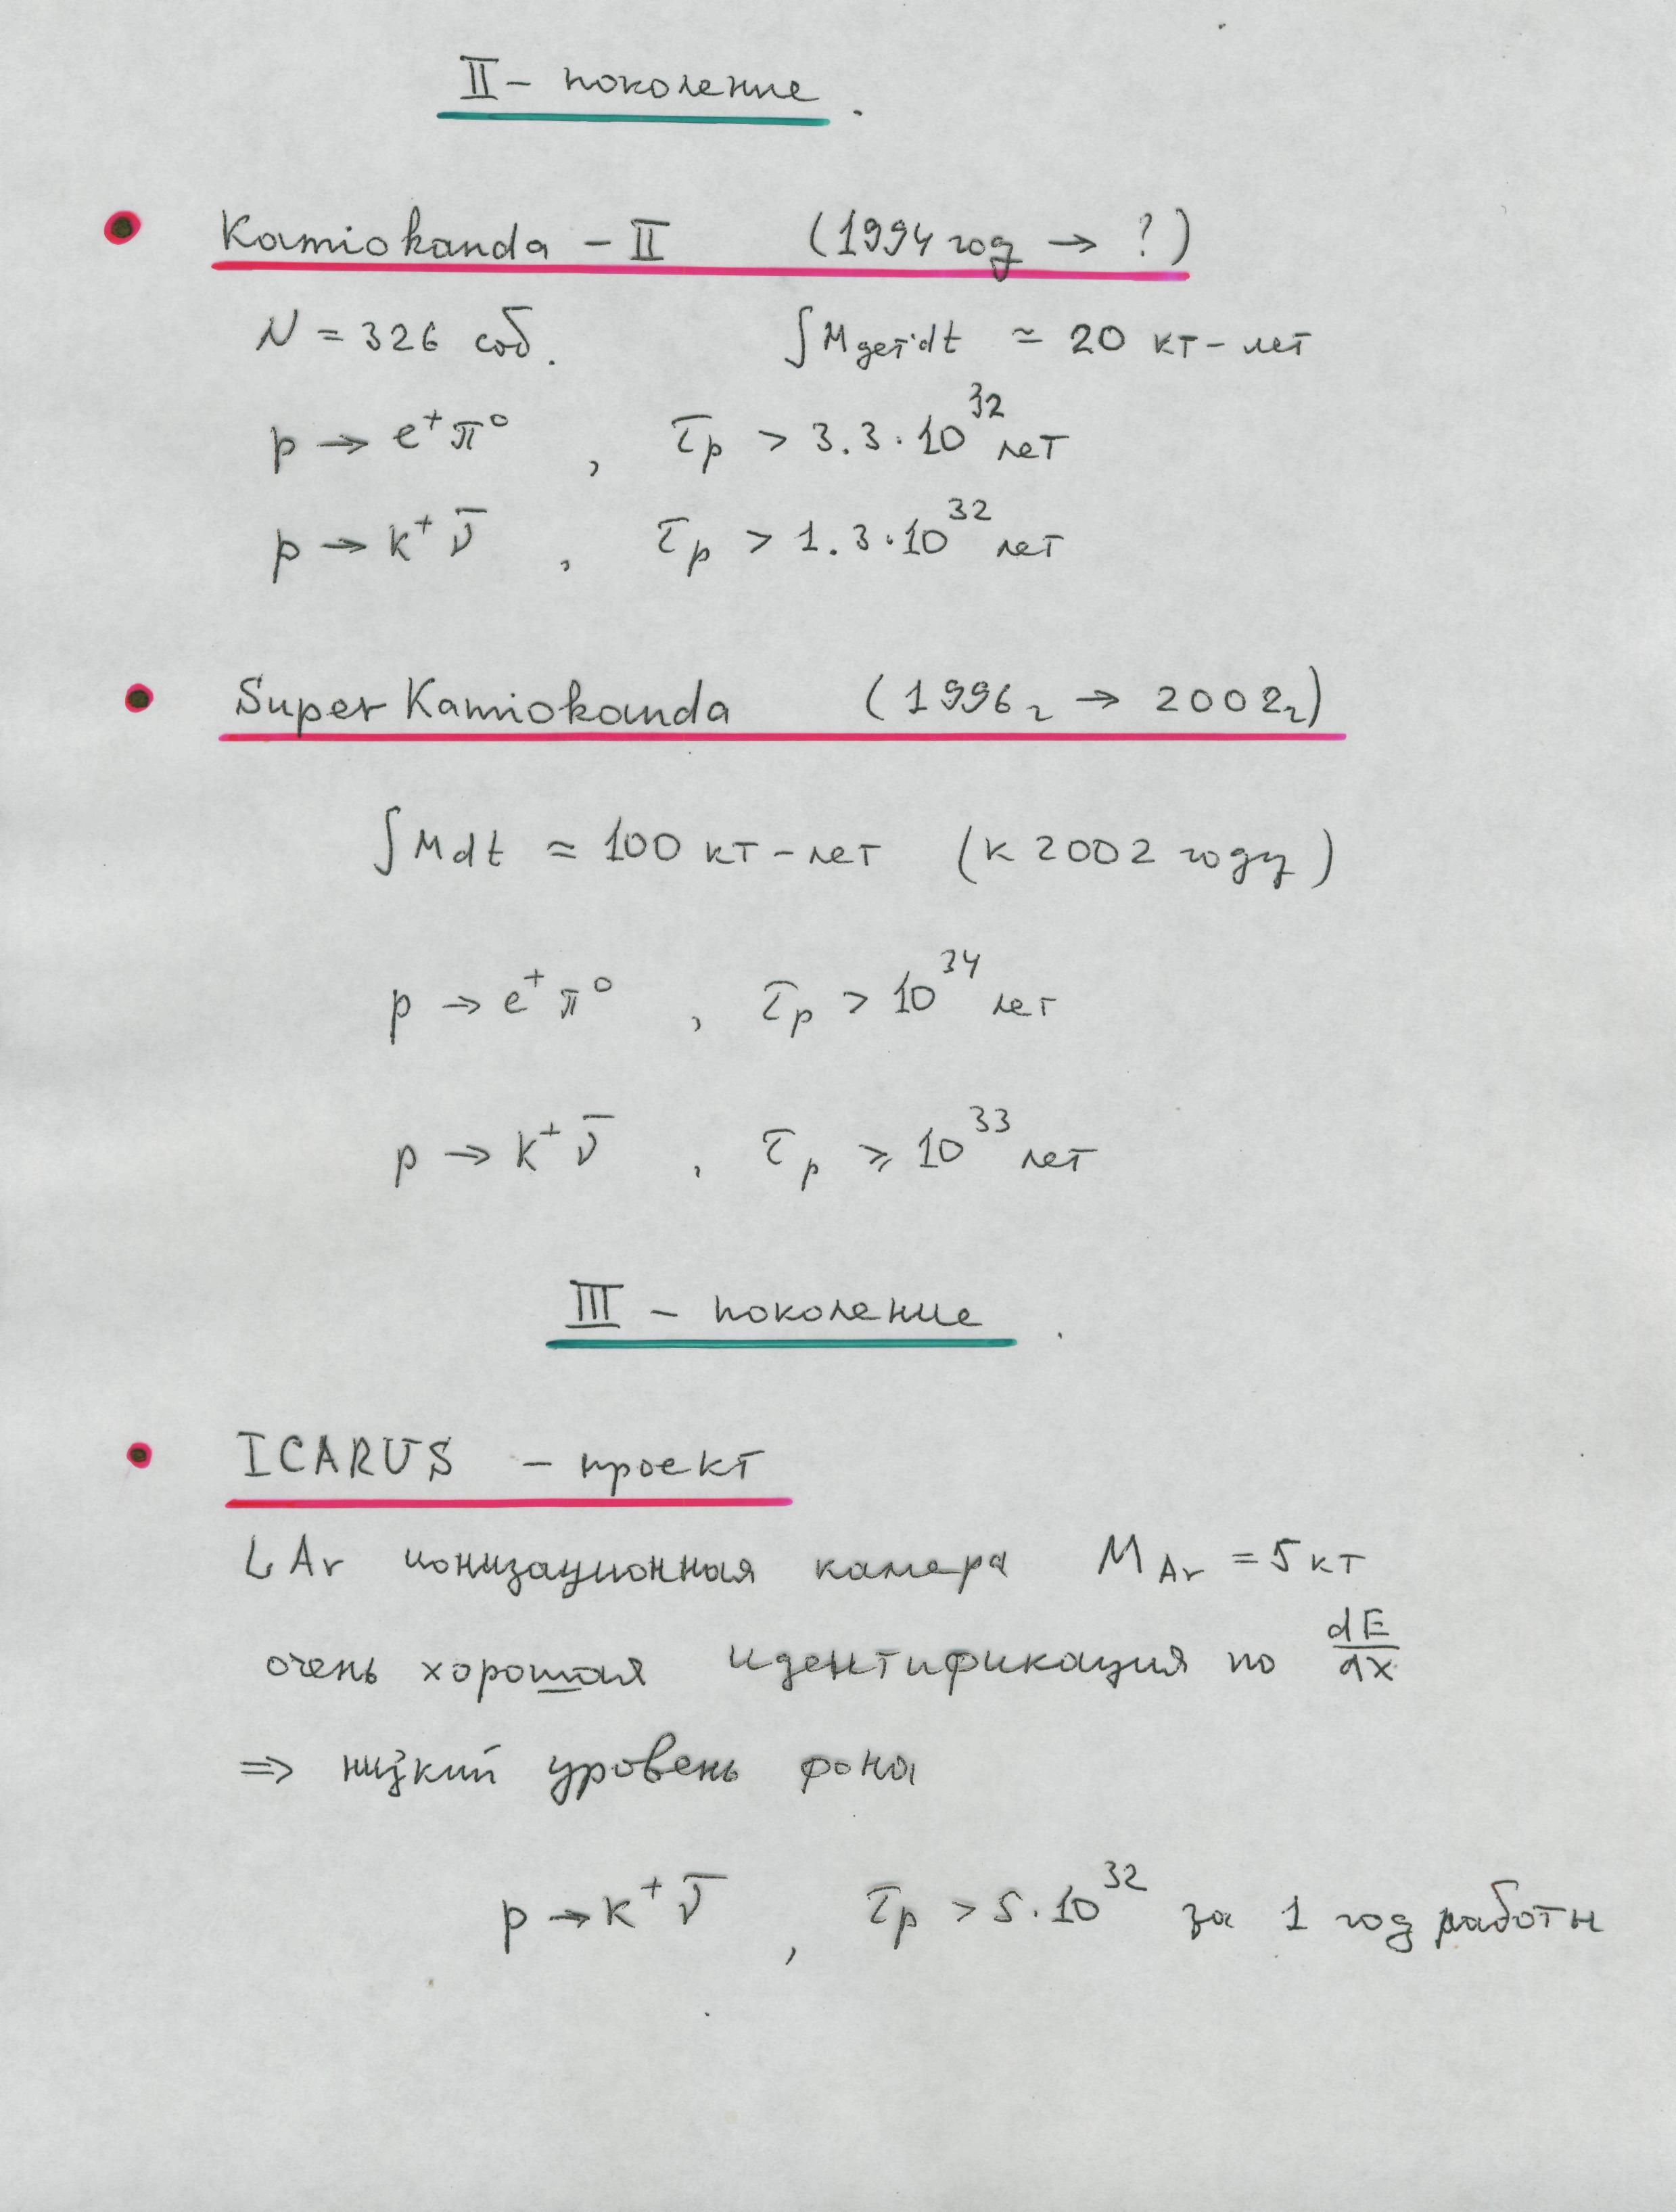 II - поколение.
Kamiokanda - II (1994 год → ?)
N = 326 соб. ∫Mдет·dt ≃ 20 кт-лет
p → e⁺π⁰, τp > 3.3·10³² лет
p → k⁺ν̅, τp > 1.3·10³² лет
Super Kamiokanda (1996г → 2002г)
∫Mdt ≈ 100 кт-лет (к 2002 году)
p → e⁺π⁰, τp > 10³⁴ лет
p → k⁺ν̅, τp ⩾ 10³³ лет
III - поколение.
ICARUS - проект
LAr ионизационная камера M Ar = 5 кт
очень хорошая идентификация по dE/dx
⇒ низкий уровень фона
p → k⁺ν̅, τp > 5·10³² за 1 год работы